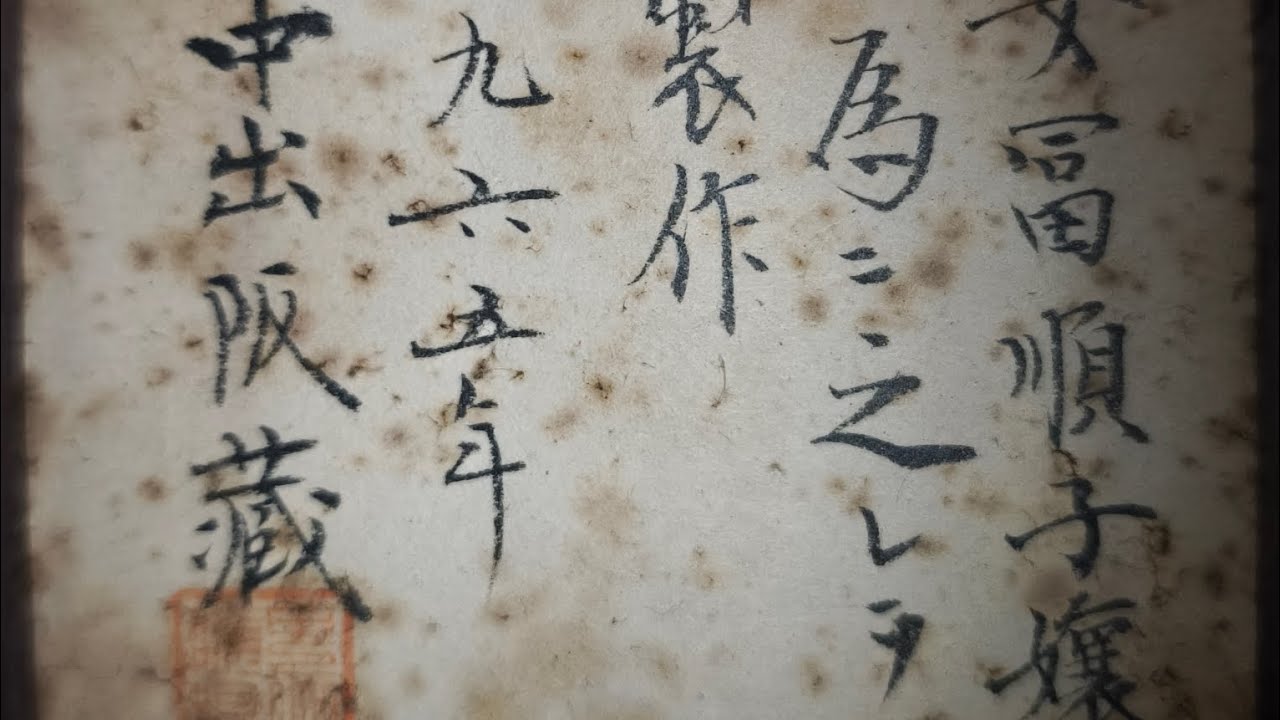 安冨順子嬢
為ニ之レヲ
製作
九六五年
中出阪蔵